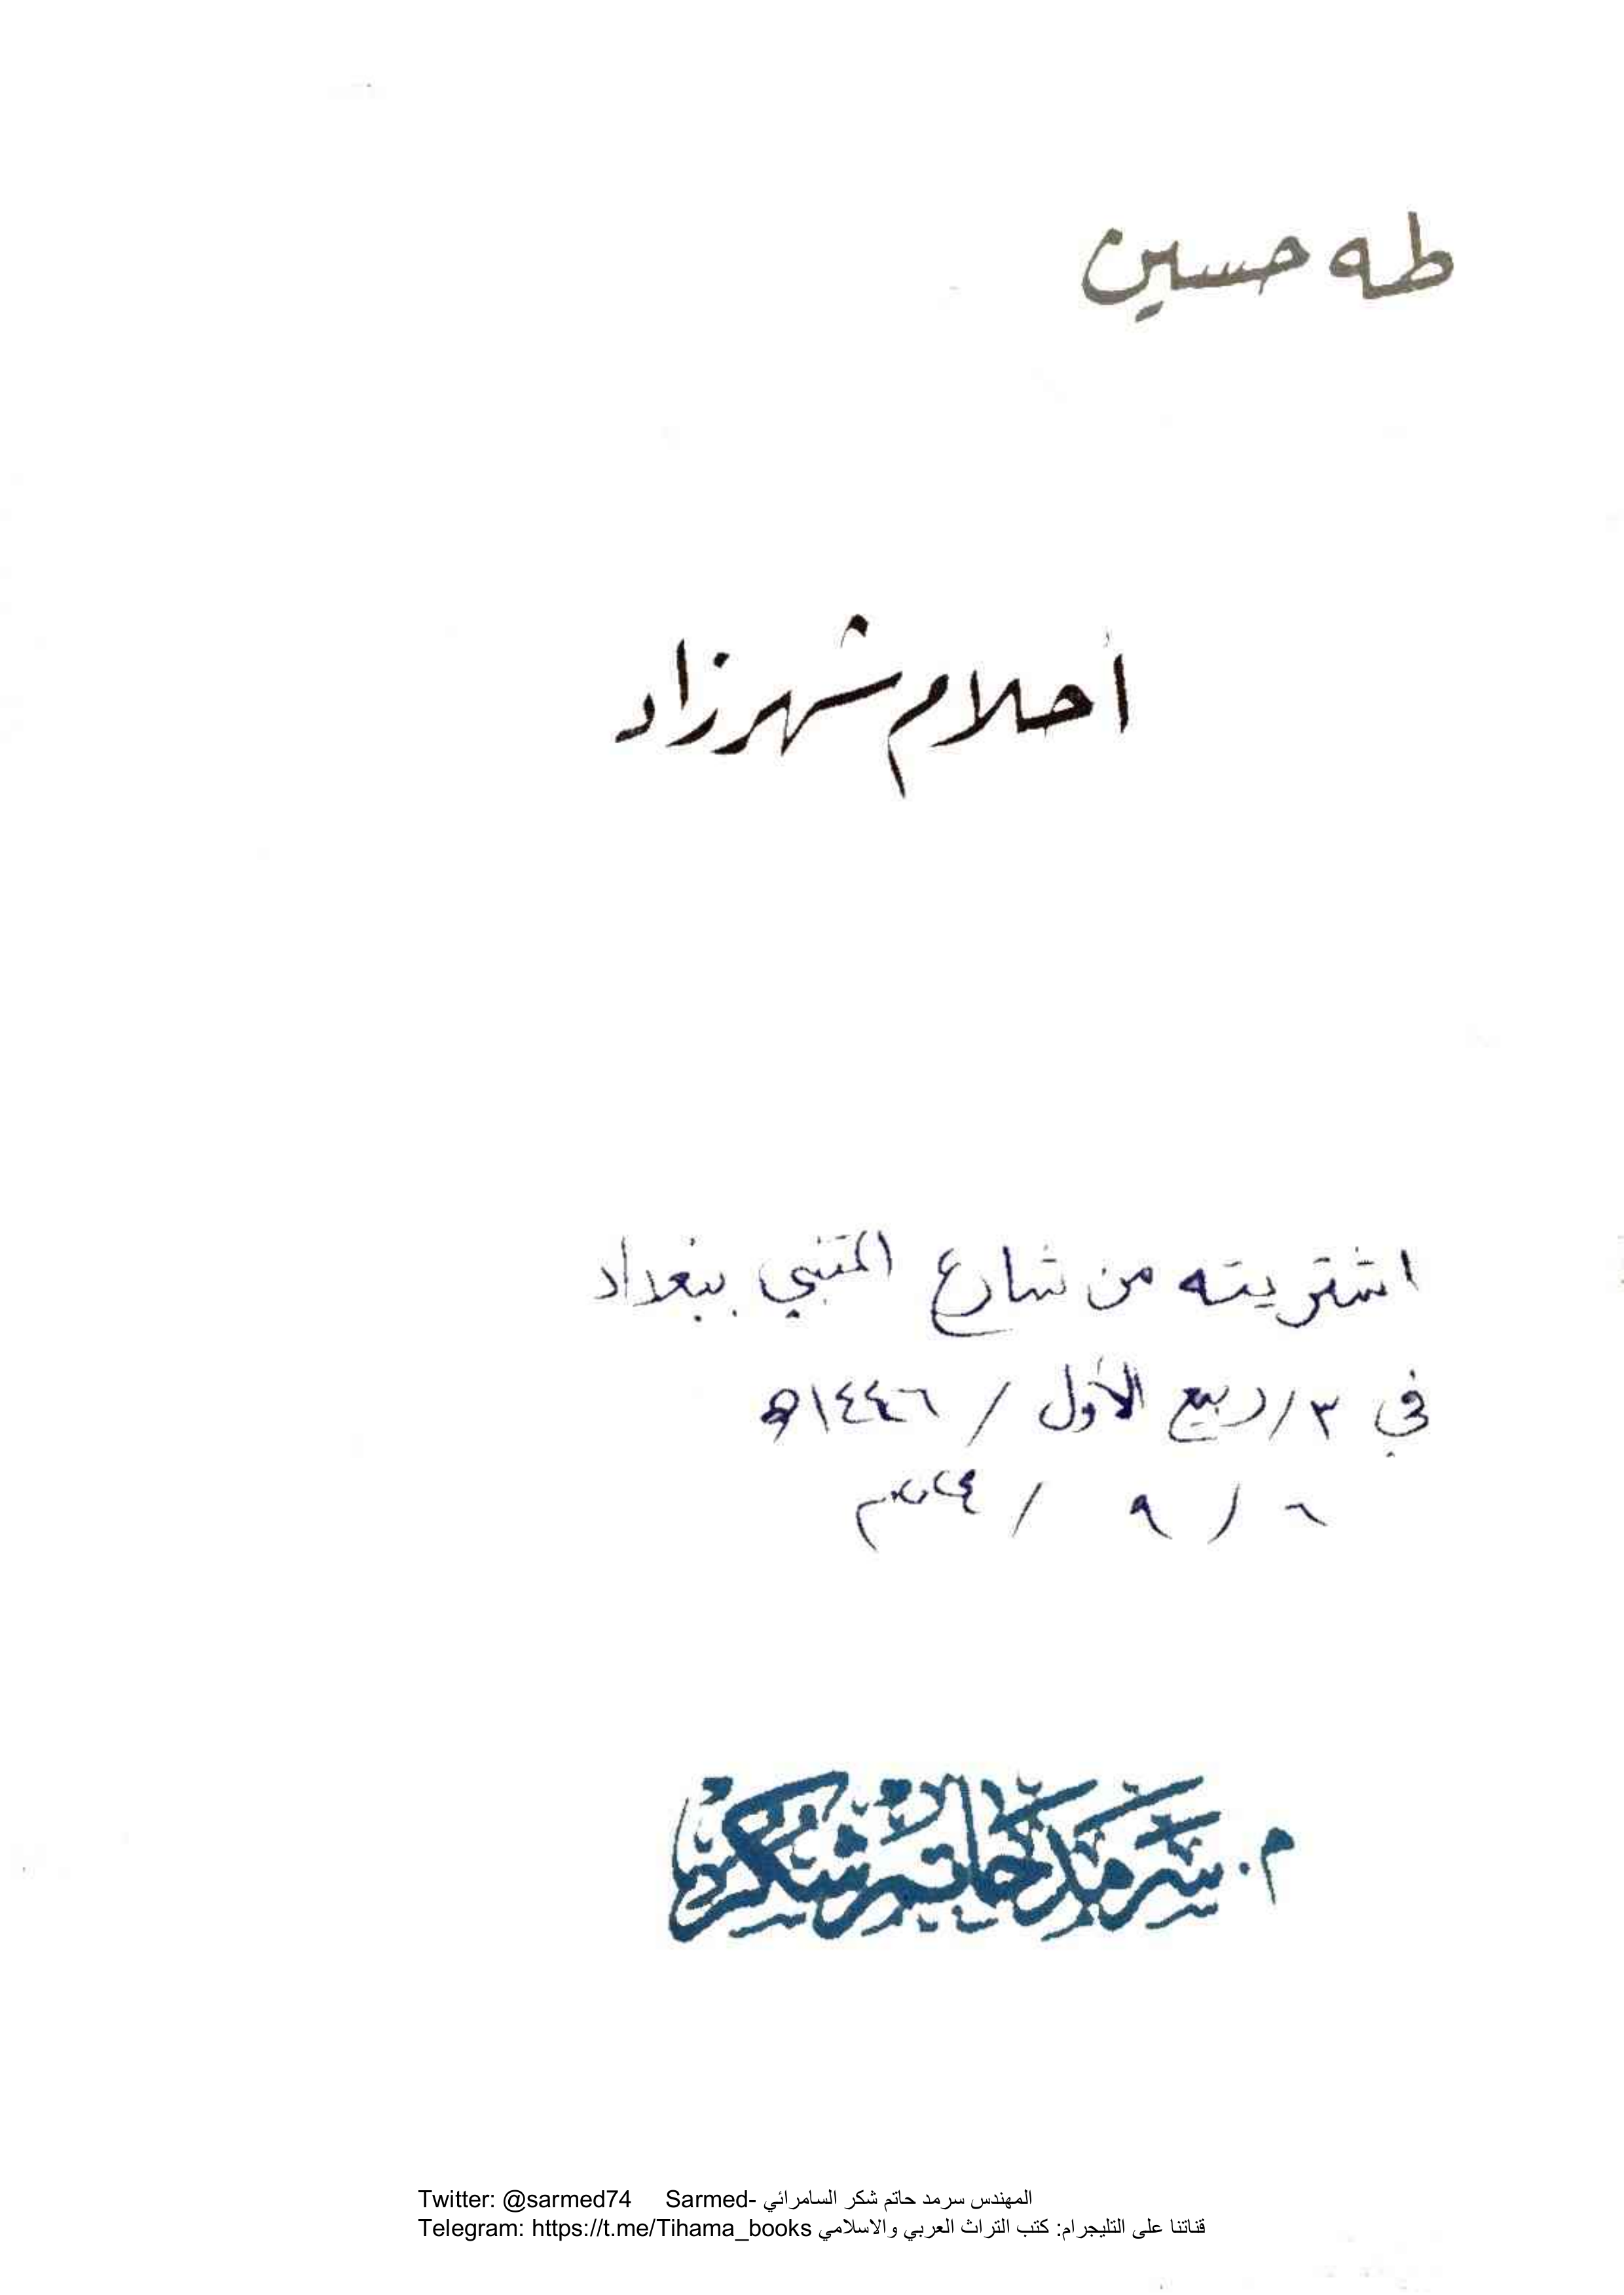 طه حسين
أحلام شهرزاد
اشتريته من شارع المتنبي ببغداد
في ٣/ربيع الأول / ١٤٤٦ه
٦ / ٩ / ٢٠٢٤م
م. سرمد حاتم شكر
Twitter: @sarmed74 Sarmed- المهندس سرمد حاتم شكر السامرائي
Telegram: https://t.me/Tihama_books قناتنا على التليجرام: كتب التراث العربي والاسلامي